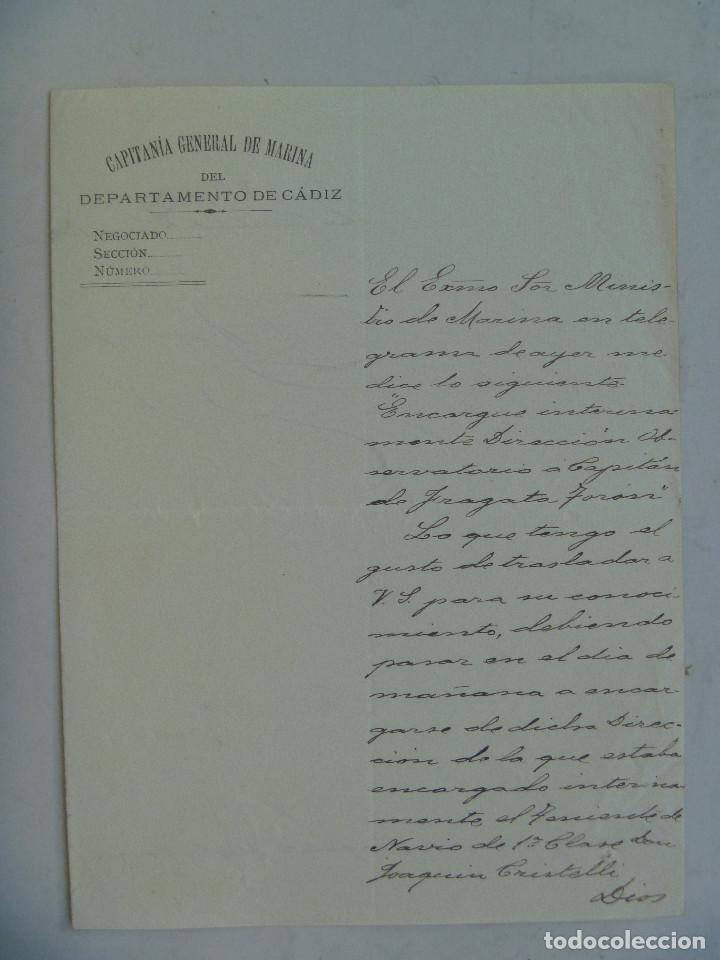 CAPITANÍA GENERAL DE MARINA
DEL
DEPARTAMENTO DE CÁDIZ
NEGOCIADO
SECCIÓN
NÚMERO
El Exmo Sor Minis-
tro de Marina en tele-
grama de ayer me
dice lo siguiente.
"Encargue interina-
mente Dirección Ob-
servatorio a Capitán
de Fragata Foron"
Lo que tengo el
gusto de trasladar a
V. S. para su conoci-
miento, debiendo
pasar en el dia de
mañana a encar-
garse de dicha Direc-
ción de la que estaba
encargado interina-
mente el Teniente de
Navio de 1ª Clase Don
Joaquin Cristelli
Dios
todocoleccion
todocoleccion.net